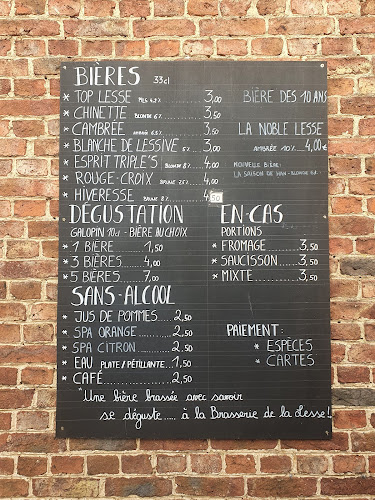 BIÈRES 33cl
* TOP LESSE 3,00
* CHINETTE BLONDE 3,50
* CAMBRÉE AMBRÉE 3,50
* BLANCHE DE LESSIVE 3,50
* ESPRIT TRIPLE'S BLONDE 8% 4,00
* ROUGE-CROIX BRUNE 4,00
* HIVERESSE BRUNE 8% 4,50
BIÈRE DES 10 ANS
LA NOBLE LESSE
AMBRÉE 10% 4,00€
NOUVELLE BIÈRE:
LA SAISON DE HAN - BLONDE
DÉGUSTATION
GALOPIN 10cl - BIÈRE AU CHOIX
* 1 BIÈRE 1,50
* 3 BIÈRES 4,00
* 5 BIÈRES 7,00
EN-CAS
PORTIONS
* FROMAGE 3,50
* SAUCISSON 3,50
* MIXTE 3,50
SANS-ALCOOL
* JUS DE POMMES 2,50
* SPA ORANGE 2,50
* SPA CITRON 2,50
* EAU PLATE / PÉTILLANTE 1,50
* CAFÉ 2,50
PAIEMENT:
* ESPÈCES
* CARTES
"Une bière brassée avec savoir
se déguste..... à la Brasserie de la Lesse!